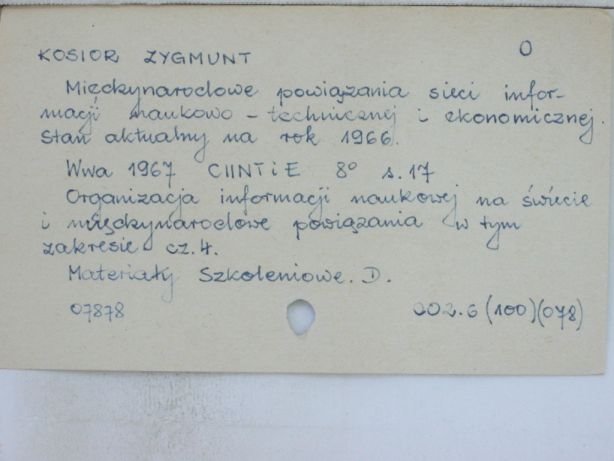 KOSIOR ZYGMUNT O
Międzynarodowe powiązania sieci infor-
macji naukowo-technicznej i ekonomicznej.
Stan aktualny na rok 1966.
Wwa 1967 CIINTiE 8° s. 17
Organizacja informacji naukowej na świecie
i międzynarodowe powiązania w tym
zakresie cz. 4.
Materiały Szkoleniowe. D.
07878 002.6(100)(078)